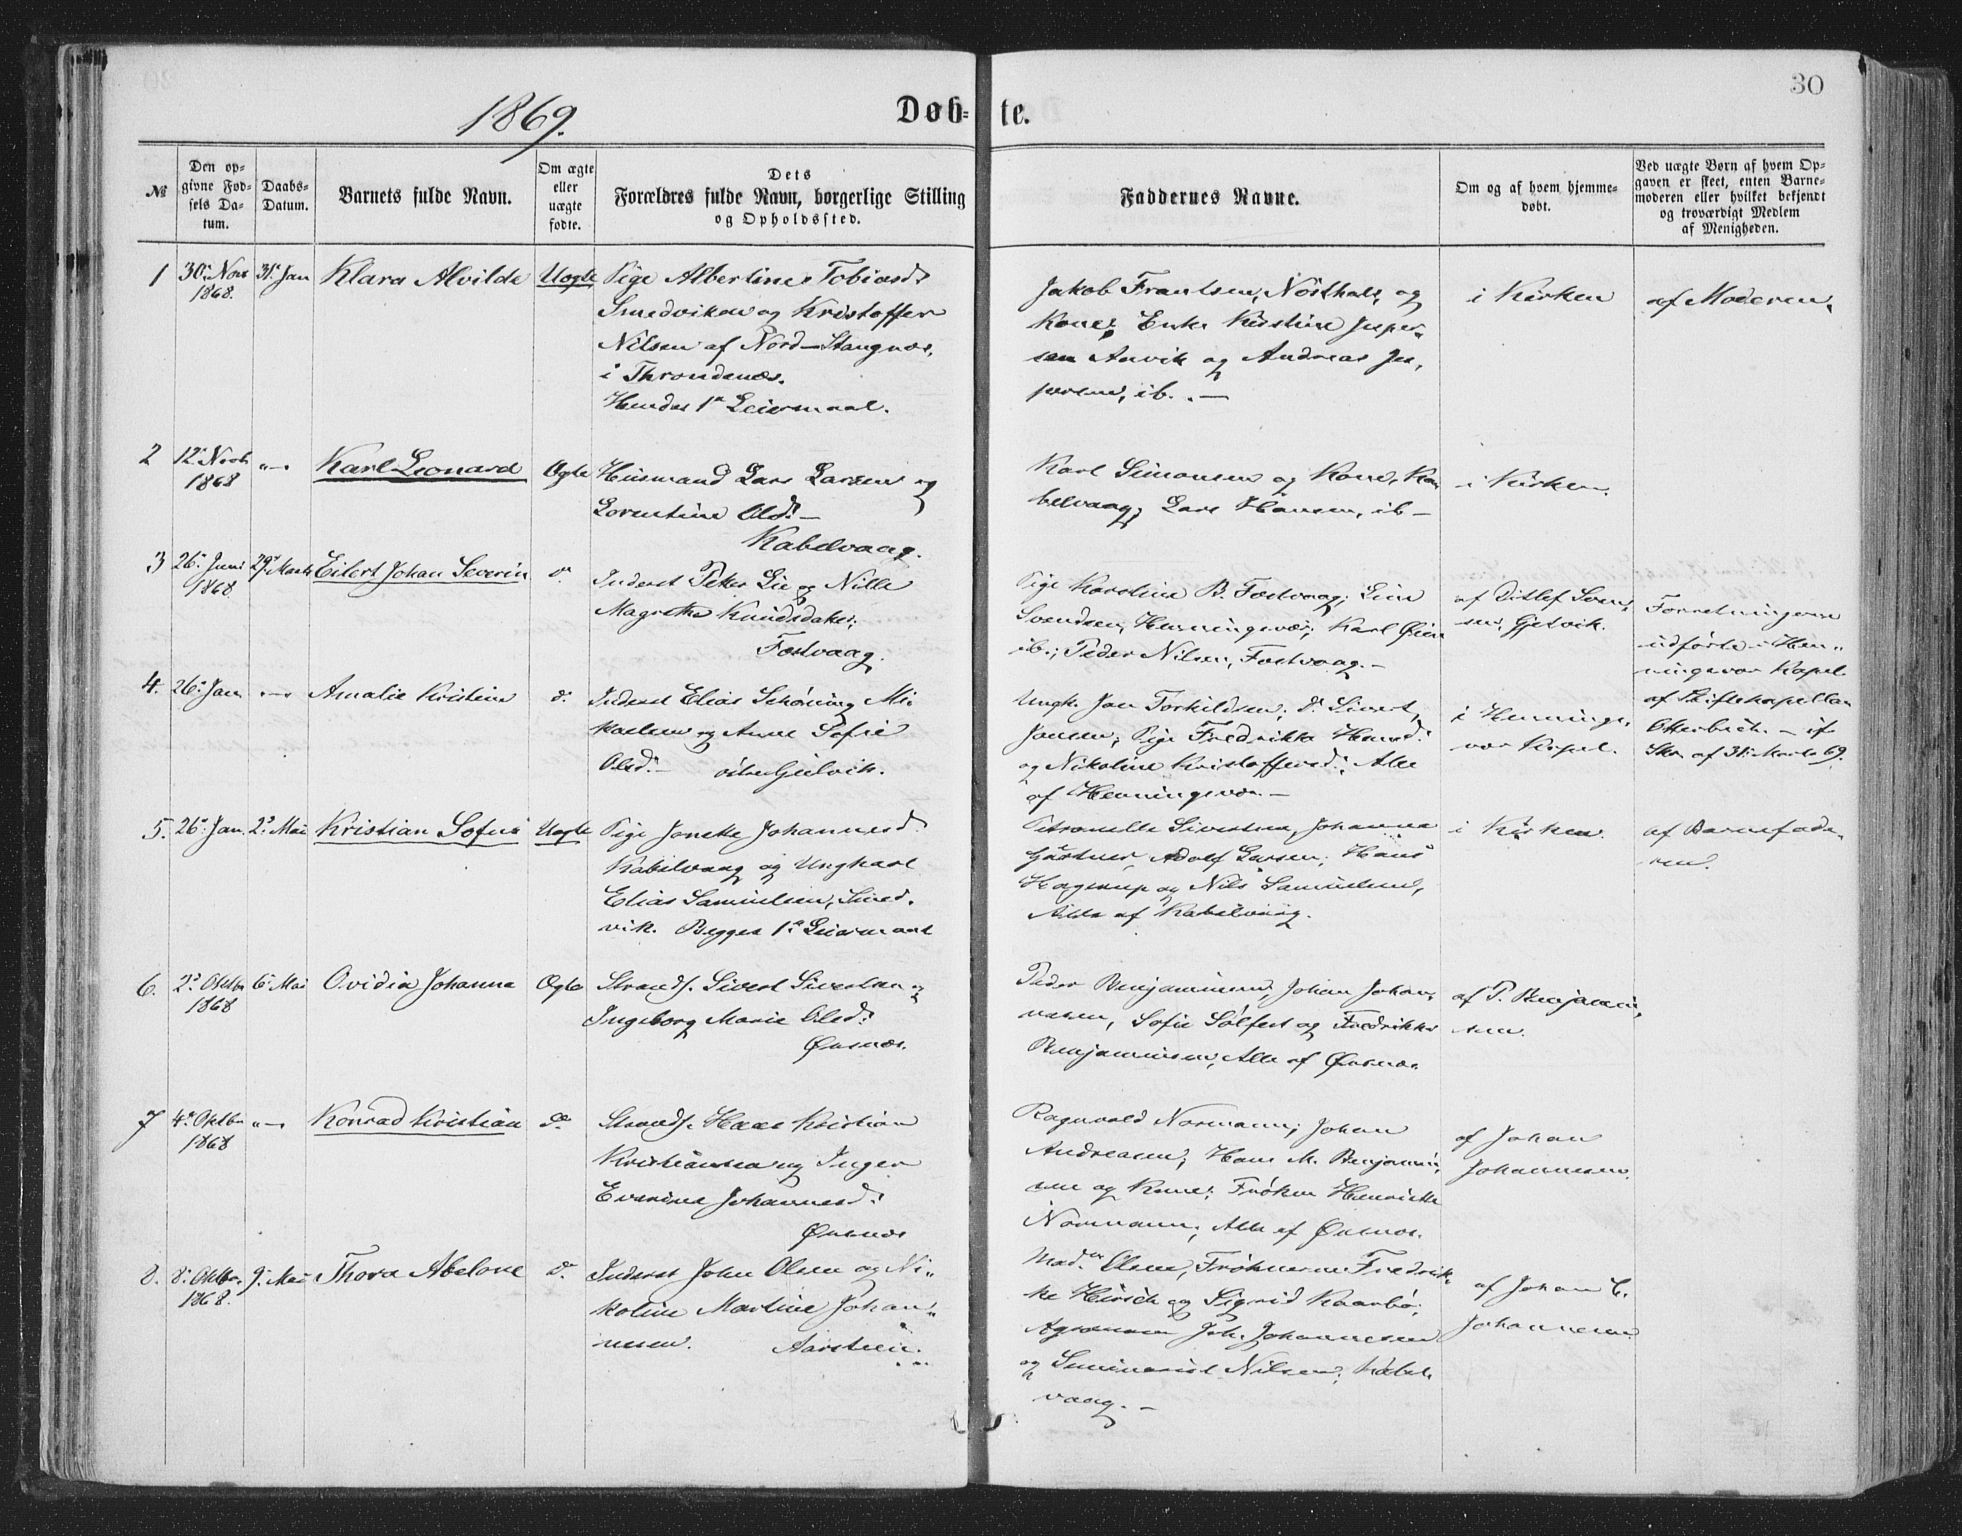 30
1869.
Døb-te.
№
Den op-
givne Fød-
sels Da-
tum.
Daabs-
Datum.
Barnets fulde Navn.
Om ægte
eller
uægte
fødte.
Dets
Forældres fulde Navn, borgerlige Stilling
og Opholdssted.
Faddernes Navne.
Om og af hvem hjemme-
døbt.
Ved uægte Børn af hvem Op-
gaven er skeet, enten Barne-
moderen eller hvilket bekjendt
og troværdigt Medlem
af Menigheden.
1
30: Nov
1868.
31: Jan
Klara Alvilde
Uægte
Pige Albertine Tobiasd:
Smedviken og Kristoffer
Nilsen af Nord-Stangnæs,
i Throndenæs.
Hendes 1ste Leiermaal.
Jakob Frantsen, og
Kone; Enke Kirstine Jesper-
sen Anvik og Andreas Jes-
persen, ib. –
i Kirken
af Moderen.
2
12: Novb
1868
Karl Leonard
Ægte
Husmand Lars Larsen og
Lorentine Olsd: –
Kabelvaag.
Karl Simonsen og Kone, Ka-
belvaag; Lars Hansen, ib –
i Kirken.
3
26: Juni
1868
29: Marts
Eilert Johan Severin
d:
Inderst Peter Lie og Nille
Magrethe Knudsdatter,
Festvaag.
Pige Karoline B. Festvaag; Line
Svendsen, Henningsvær; Karl Øien
ib.; Peder Nilsen, Festvaag. –
af Ditlef Svend-
sen, Gjetvik.
Forretningerne
udførte i Hen-
ningsvær Kapel
af Stiftskapellan
Otterbech. – if
Skr af 31: Marts 69.
4.
26: Jan
Amalie Kristine
d:
Inderst Elias Schøning Mi-
kaelsen og Anne Sofie
Olsd: –
Ungk. Jon Torkildsen; d: Sivert
Jonsen; Pige Fredrikke Hansd:
og Nikoline Kristoffersd:, Alle
af Henningsvær. –
i Hennings-
vær Kapel.
5.
26: Jan.
2: Mai
Kristian Sofus
Uægte
Pige Jonette Johannesd:
Kabelvaag og Ungkarl
Elias Samuelsen, Smed-
vik. Begges 1ste Leiermaal
Petronelle Sivertsen, Johanna
Gärtner, Adolf Larsen; Hans
Hagerup og Nils Samuelsen,
Alle af Kabelvaag.
i Kirken.
af Barnefade-
ren.
6.
2: Oktbr
1868
6: Mai
Ovidia Johanna
Ægte
Strands. Sivert Sivertsen og
Ingeborg Marie Olsd:
Ørsnæs.
Peder Benjaminsen, Johan Johan-
nesen, Sofie Sølfest og Fredrikke
Benjaminsen, Alle af Ørsnæs.
af P. Benjamin-
sen.
7
4: Oktbr
1868
Konrad Kristian
d:
Strands. Hans Kristian
Kristiansen og Inger
Everine Johannesd:
Ørsnæs
Ragnvald Normann; Johan
Andreasen; Hans M. Benjamin-
sen og Kone; Frøken Henriette
Normann, Alle af Ørsnæs.
af Johan
Johannesen.
8.
8: Oktbr
1868.
9: Mai
Thora Abelone
d:
Inderst John Olsen og Ni-
koline Martine Johan-
nesen. Aarstein.
Mad: Olsen, Frøknerne Fredrik-
ke Hirsch og Sigrid Kaarbø;
Agronom Joh. Johannesen
og Seminarist Nilsen, Kabel-
vaag. –
af Johan C.
Johannesen